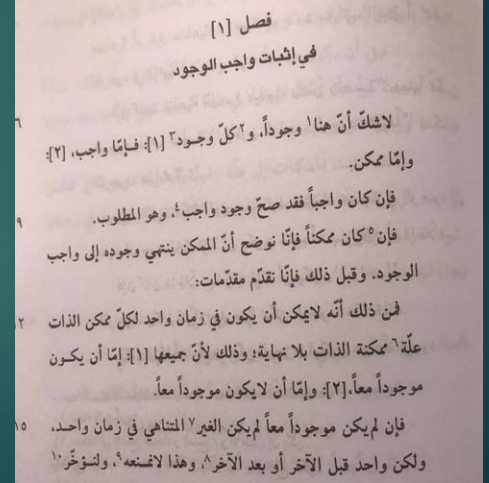 فصل [١]
في إثبات واجب الوجود
لاشكّ أنّ هنا١ وجوداً، و٢ كلّ وجـود٣ [١]: فـإمّا واجب، [٢]:
٦
وإمّا ممكن.
فإن كان واجباً فقد صحّ وجود واجب٤، وهو المطلوب.
٩
فإن٥ كان ممكناً فإنّا نوضح أنّ الممكن ينتهي وجوده إلى واجب
الوجود. وقبل ذلك فإنّا نقدّم مقدّمات:
فمن ذلك أنّه لايمكن أن يكون في زمان واحد لكلّ ممكن الذات
١٢
علّة٦ ممكنة الذات بلا نهاية؛ وذلك لأنّ جميعها [١]: إمّا أن يكـون
موجوداً معاً، [٢]: وإمّا أن لايكون موجوداً معاً.
فإن لم يكن موجوداً معاً لم يكن الغير٧ المتناهي في زمان واحـد،
١٥
ولكن واحد قبل الآخر أو بعد الآخر٨، وهذا لانمـنعه٩، ولنـؤخّر١٠